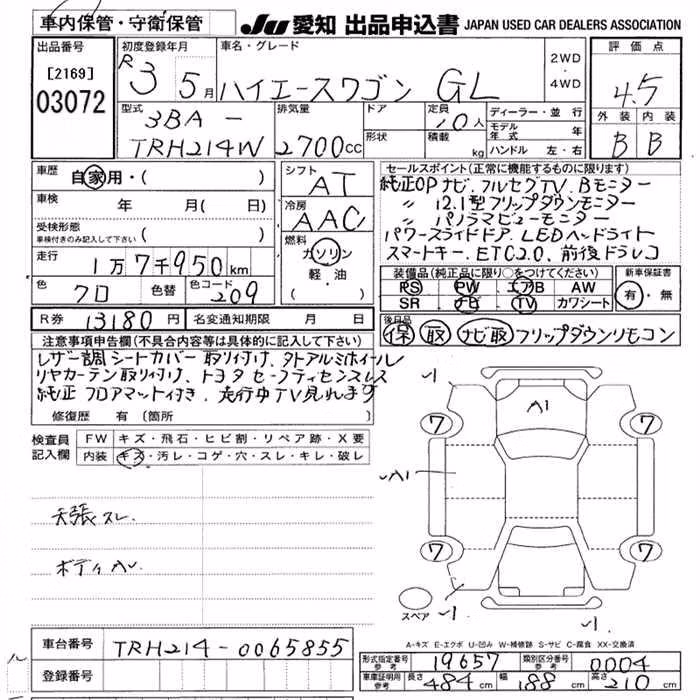 車内保管・守衛保管
JU 愛知 出品申込書 JAPAN USED CAR DEALERS ASSOCIATION
出品番号
[2169]
03072
初度登録年月
R3 5月
車名・グレード
ハイエースワゴン GL
2WD
・
4WD
評価点
4.5
外装 内装
B B
型式
3BA-
TRH214W
排気量
2700cc
ドア
形状
定員
10人
積載
kg
ディーラー・並行
モデル年式 年
ハンドル 左・右
車歴
自家用・( )
車検 年 月( 日)
受検形態
車検付きのみ記入して下さい ( )
走行 1万7千950km
色 クロ 色替 色コード 209
R券 13180円 名変通知期限 月 日
シフト
AT
冷房
AAC
燃料
ガソリン
軽・油
( )
セールスポイント(正常に機能するものに限ります)
純正OPナビ.フルセグTV.Bモニター
〃 12.1型フリップダウンモニター
〃 パノラマビューモニター
パワースライドドア.LEDヘッドライト
スマートキー.ETC2.0.前後ドラレコ
装備品(純正品に限り○をつけてください)
PS PW エアB AW
SR ナビ TV カワシート
新車保証書
有・無
後日品
保 取 ナビ取 フリップダウンリモコン
注意事項申告欄(不具合内容等は具体的に記入して下さい)
レザー調シートカバー取り付け.外トアルミホイール
リヤカーテン取り付け.トヨタセーフティセンスレス
純正フロアマット付き.走行中TV見れます
修復歴 有 〔箇所 〕
検査員記入欄
FW キズ・飛石・ヒビ割・リペア跡・X要
内装 キズ・汚レ・コゲ・穴・スレ・キレ・破レ
天張スレ.
ボディ
A1
A1
7 7
7 7
スペア
A-キズ E-エクボ U-凹み W-補修跡 S-サビ C-腐食 XX-交換済
車台番号 TRH214-0065855
登録番号
形式指定番号 参考 19657 類別区分番号 参考 0004
車庫証明用 参考 長さ 484cm 幅 188cm 高さ 210cm